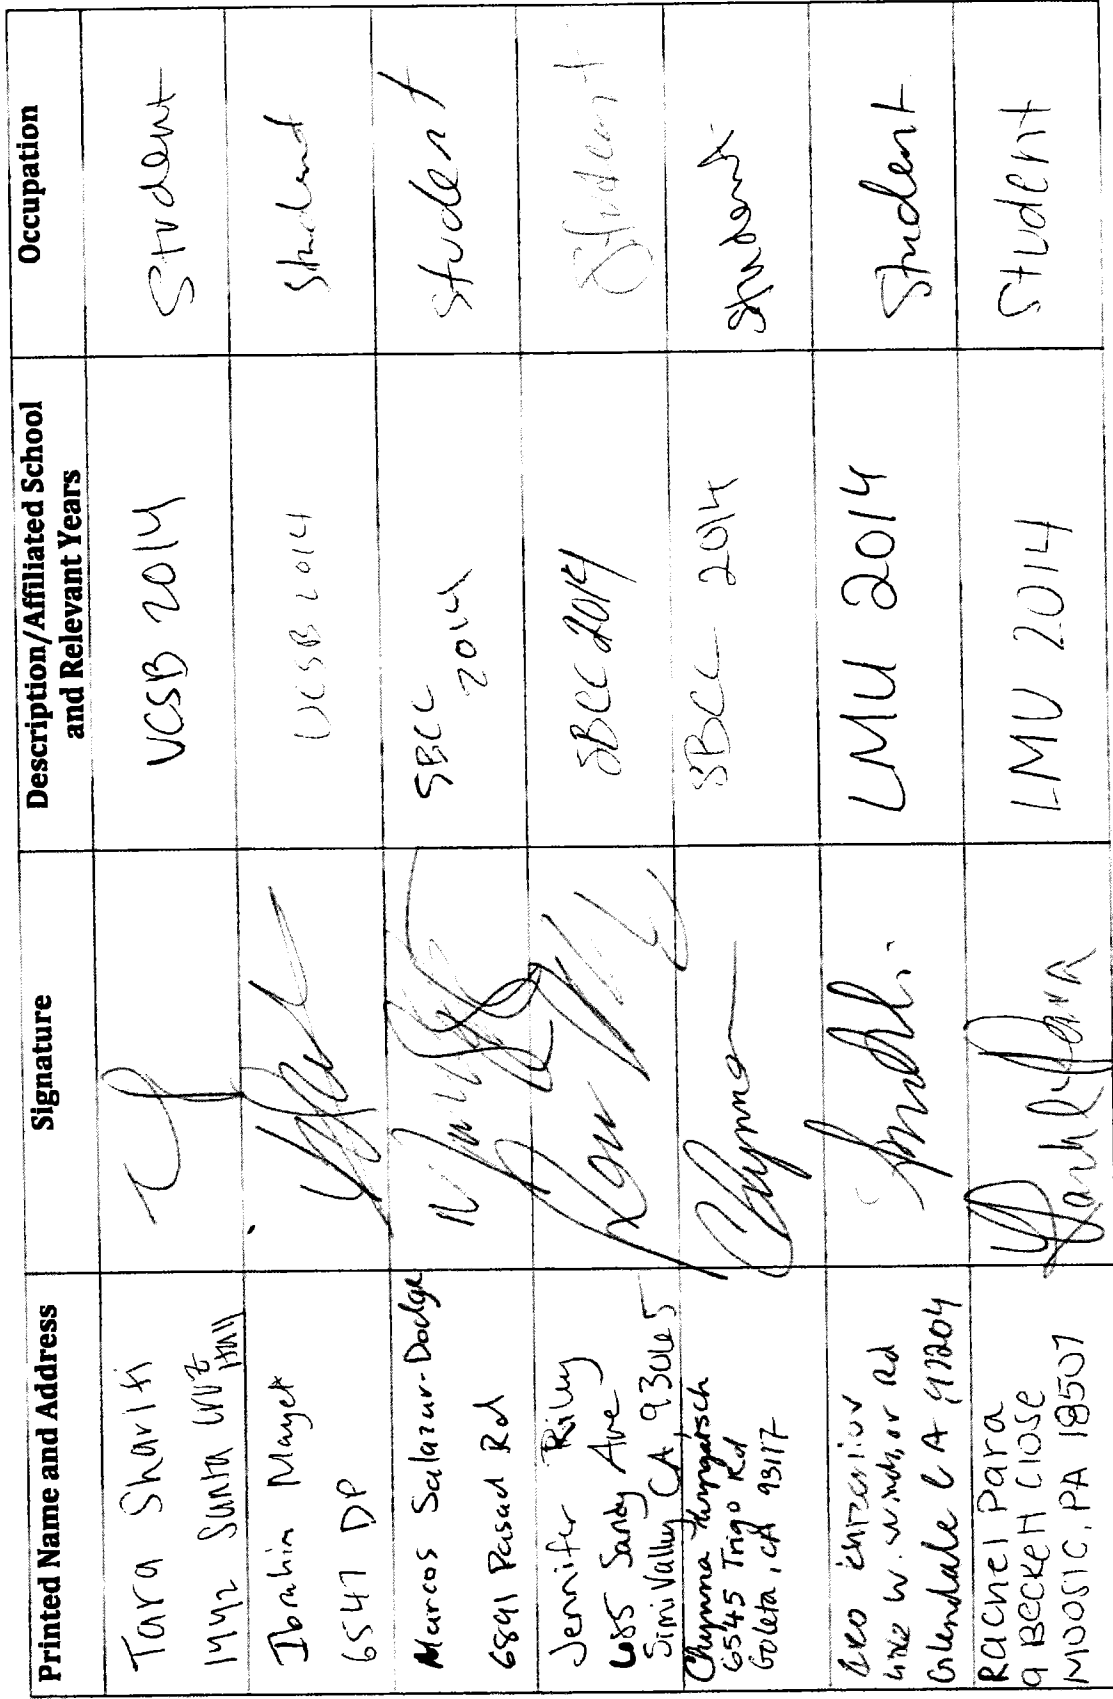 Printed Name and Address Signature Description/Affiliated School and Relevant Years Occupation
Tara Sharifi
1442 Santa Cruz Hall
UCSB 2014
Student
Ibrahim Mayet
6547 DP
UCSB 2014
Student
Marcos Salazar-Dodge
6891 Pasado Rd
SBCC
2014
Student
Jennifer Riley
685 Sandy Ave
Simi Valley CA, 93065
SBCC 2014
Student
Chynna
6545 Trigo Rd
Goleta, CA 93117
Chynna
SBCC 2014
Student
W. Windsor Rd
Glendale CA
LMU 2014
Student
Rachel Para
9 Beckett Close
Moosic, PA 18507
LMU 2014
Student